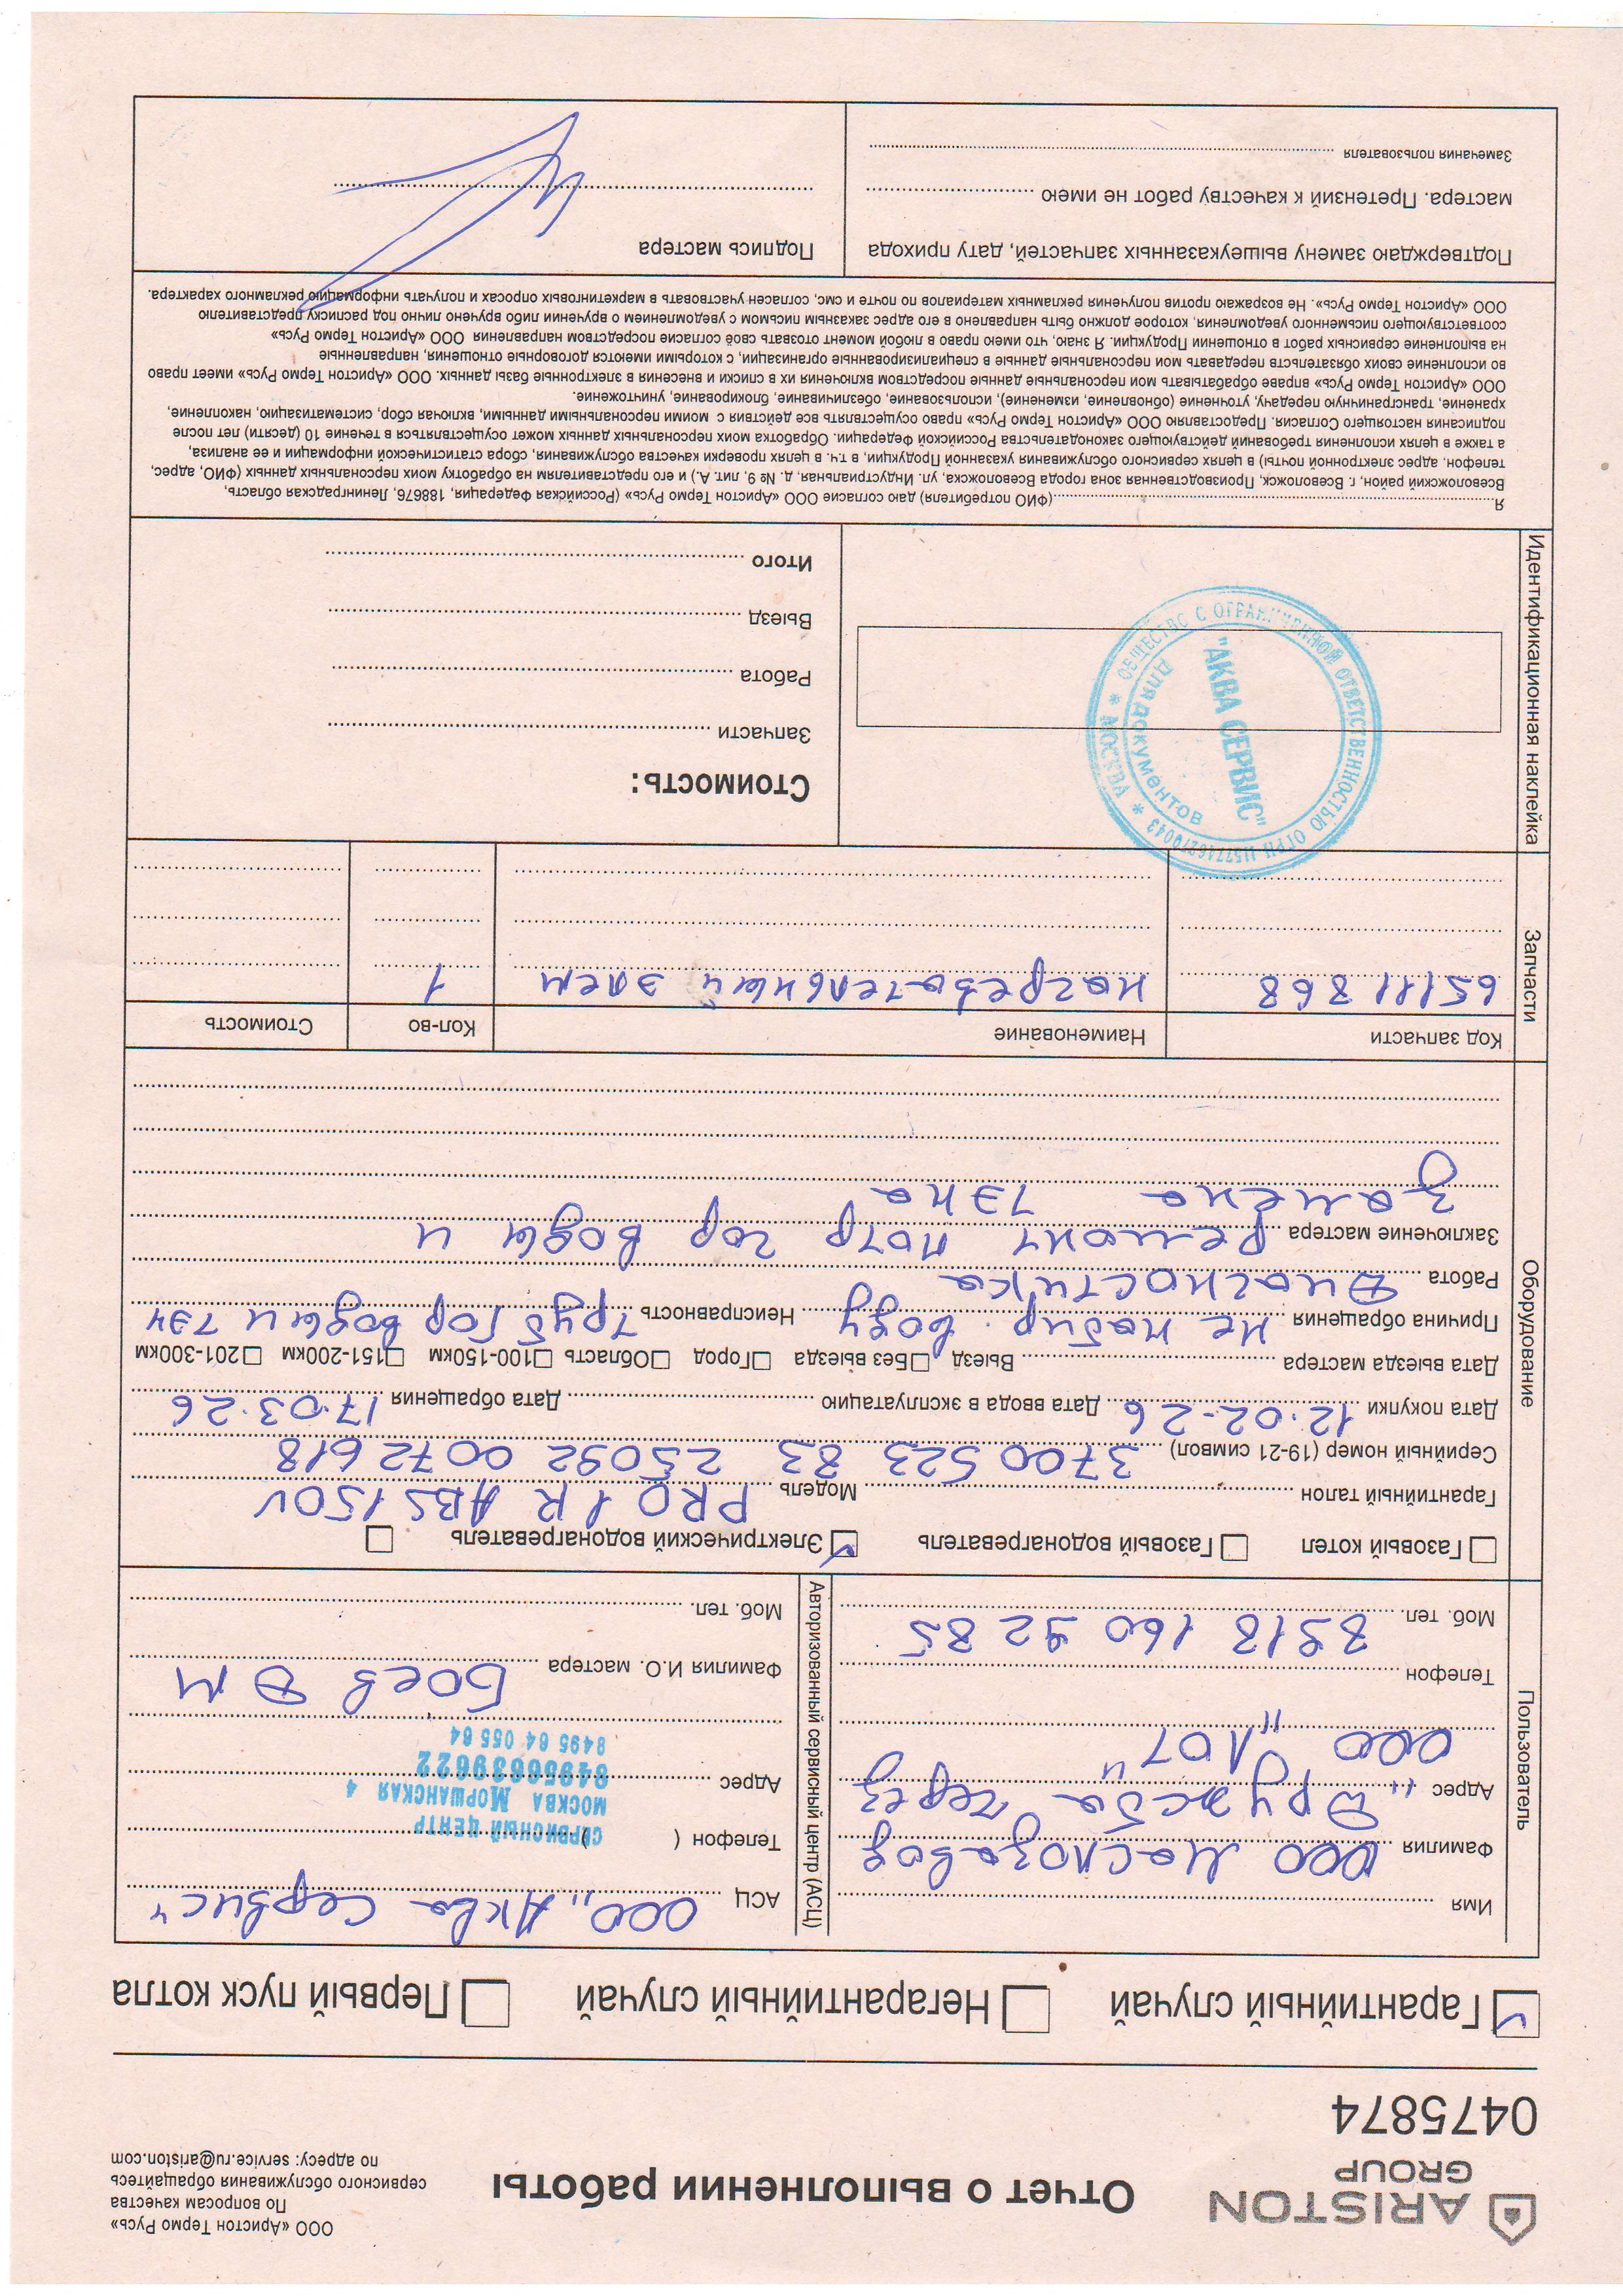 ARISTON
GROUP
Отчет о выполнении работы
ООО «Аристон Термо Русь»
По вопросам качества
сервисного обслуживания обращайтесь
по адресу: service.ru@ariston.com
0475874
Гарантийный случай Негарантийный случай Первый пуск котла
Пользователь
Имя
Фамилия ООО Маслозавод
Адрес "Дружба" через
ООО "ЛОТ"
Телефон
Моб. тел. 8918 160 92 85
Авторизованный сервисный центр (АСЦ)
АСЦ ООО "Аква Сервис"
Телефон ( )
СЕРВИСНЫЙ ЦЕНТР
Адрес
МОСКВА МОРШАНСКАЯ 4
84956639622
8495 64 055 64
Фамилия И.О. мастера Боев Д М
Моб. тел.
Оборудование
Газовый котел Газовый водонагреватель Электрический водонагреватель
Гарантийный талон Модель PRO 1 R ABS 150V
Серийный номер (19-21 символ) 3700523 83 25092 0072618
Дата покупки 12.02.26 Дата ввода в эксплуатацию Дата обращения 17.03.26
Дата выезда мастера Выезд Без выезда Город Область 100-150км 151-200км 201-300км
Причина обращения не набир. воду Неисправность труб гор воды и тэн
Работа Диагностика
Заключение мастера ремонт патр гор воды и
замена тэна
Запчасти
Код запчасти Наименование Кол-во Стоимость
65111868 нагревательный элем 1
Идентификационная наклейка
ОБЩЕСТВО С ОГРАНИЧЕННОЙ ОТВЕТСТВЕННОСТЬЮ ОГРН 1157746279043 * МОСКВА *
"АКВА СЕРВИС"
Для документов
Стоимость:
Запчасти
Работа
Выезд
Итого
Я (ФИО потребителя) даю согласие ООО «Аристон Термо Русь» (Российская Федерация, 188676, Ленинградская область,
Всеволожский район, г. Всеволожск, Производственная зона города Всеволожска, ул. Индустриальная, д. № 9, лит. А,) и его представителям на обработку моих персональных данных (ФИО, адрес,
телефон, адрес электронной почты) в целях сервисного обслуживания указанной Продукции, в т.ч. в целях проверки качества обслуживания, сбора статистической информации и ее анализа,
а также в целях исполнения требований действующего законодательства Российской Федерации. Обработка моих персональных данных может осуществляться в течение 10 (десяти) лет после
подписания настоящего Согласия. Предоставляю ООО «Аристон Термо Русь» право осуществлять все действия с моими персональными данными, включая сбор, систематизацию, накопление,
хранение, трансграничную передачу, уточнение (обновление, изменение), использование, обезличивание, блокирование, уничтожение.
ООО «Аристон Термо Русь» вправе обрабатывать мои персональные данные посредством включения их в списки и внесения в электронные базы данных. ООО «Аристон Термо Русь» имеет право
во исполнение своих обязательств передавать мои персональные данные в специализированные организации, с которыми имеются договорные отношения, направленные
на выполнение сервисных работ в отношении Продукции. Я знаю, что имею право в любой момент отозвать своё согласие посредством направления ООО «Аристон Термо Русь»
соответствующего письменного уведомления, которое должно быть направлено в его адрес заказным письмом с уведомлением о вручении либо вручено лично под расписку представителю
ООО «Аристон Термо Русь». Не возражаю против получения рекламных материалов по почте и смс, согласен участвовать в маркетинговых опросах и получать информацию рекламного характера.
Подтверждаю замену вышеуказанных запчастей, дату прихода
мастера. Претензий к качеству работ не имею
Замечания пользователя
Подпись мастера